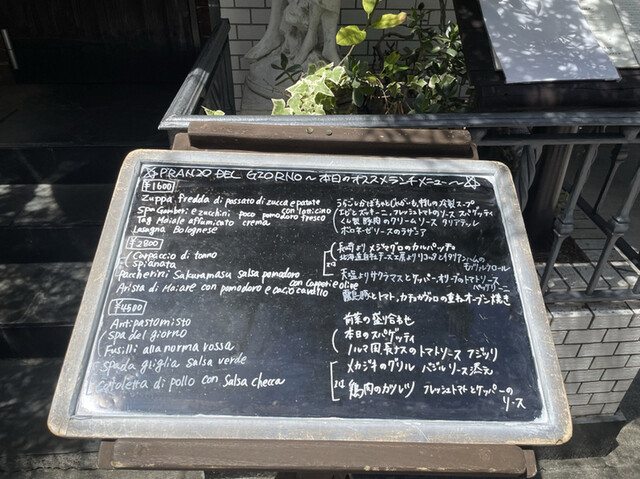 ☆PRANZO DEL GIORNO~本日のオススメランチメニュー~☆
¥1600
Zuppa fredda di passato di zucca e patate
Spa Gamberi e zucchini poco pomodoro fresco
Tag Maiale affumicato crema con latticino
lasagna Bolognese
かぼちゃとじゃがいも 冷製スープ
エビとズッキーニ、フレッシュトマトのソース スパゲッティ
くん製豚肉のクリームソース タリアテッレ
ボロネーゼソースのラザニア
¥2800
Carpaccio di tonno
spianata
Paccherini Sakuramasu salsa pomodoro
con capperi e olive
Arista di Maiale con pomodoro e cacio cavallo
長崎より メジマグロのカルパッチョ
サクラマスとケッパー、オリーブのトマトソース
パッケリーニ
豚とトマト、カチョカヴァロの重ねオーブン焼き
¥4500
Antipasto misto
Spa del giorno
Fusilli alla norma rossa
Spada griglia salsa verde
Cotoletta di pollo con salsa checca
前菜の盛り合わせ
本日のスパゲッティ
ノルマ風長ナスのトマトソース フジッリ
メカジキのグリル バジルソース添え
鶏肉のカツレツ フレッシュトマトとケッパーの
ソース